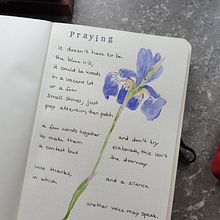 Praying
It doesn't have to be
the blue iris,
it could be weeds
in a vacant lot
or a few
small stones; just
pay attention, then patch
a few words together
to make them
a contest but
and don't try
elaborate, this isn't
the doorway
into thanks,
in which
and a silence
another voice may speak.